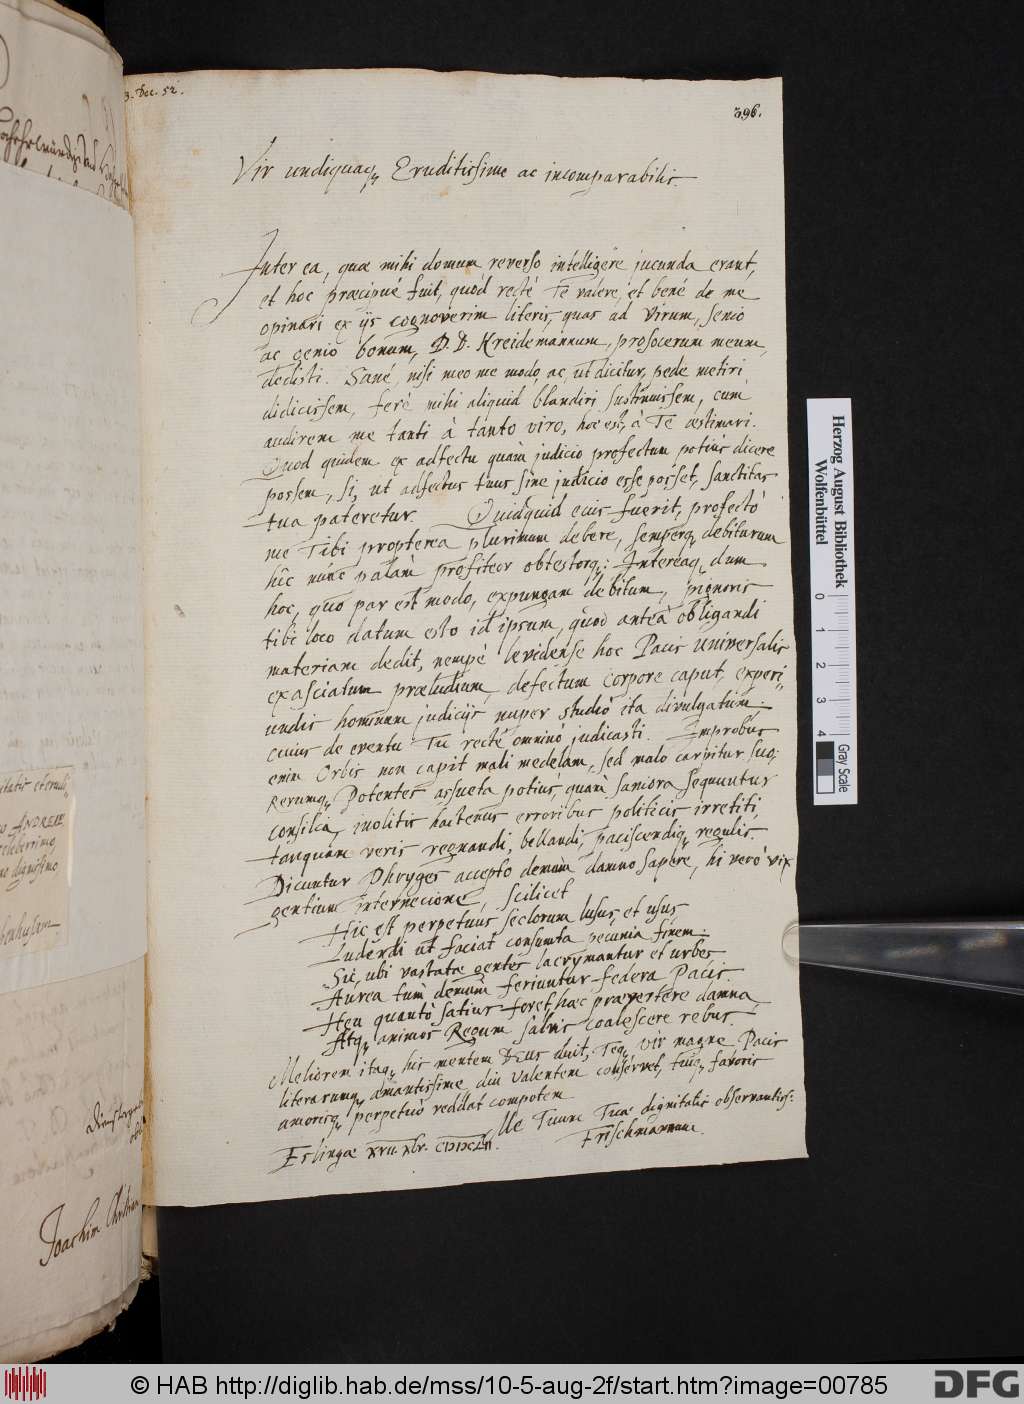 3. Dec. 52.
396.
Vir undiquaq; Eruditissime ac incomparabilis.
Inter ea, quae mihi domum reverso intelligere jucunda erant,
et hoc praecipuè fuit, quòd rectè Te valere, et bené de me
opinari ex ijs cognoverim literis, quas ad virum, senio
ac genio bonum, D. D. Kreidemannum, prosocerum meum,
dedisti. Sané, nisi meo me modo, ac, ut dicitur, pede metiri
didicissem, feré mihi aliquid blandiri sustinuissem, cum
audirem me tanti à tanto viro, hoc est, à Té aestimari.
Quod quidem ex adfectu quàm judicio profectum potiùs dicere
possem, si, ut adfectus tuus sine judicio esse posset, sanctitas
tua pateretur. Quidquid eius fuerit, profectò
me Tibi propterea plurimum debere, semperq; debiturum
hîc nunc palàm profiteor obtestorq;: Intereaq; dum
hoc, quo par est modo, expungam debitum, pignoris
tibi loco datum esto id ipsum, quod anteà obligandi
materiam dedit, nempè levidense hoc Pacis universalis
exasciatum praeludium, defectum corpore caput, experi
undis hominum judicijs nuper studio ita divulgatum.
Cuius de eventu Tu rectè omninò judicasti. Improbus
enim Orbis non capit mali medelam, sed malo carpitur suo,
Rerumq; Potentes assueta potiùs, quàm saniora sequuntur
consilia, inolitis hactenus erroribus politicis irretiti,
tanquam veris regnandi, bellandi, paciscendiq; regulis.
Dicuntur Phryges accepto demùm damno sapere, hi verò vix
gentium internecione, scilicet
Hic est perpetuus seclorum lusus, et usus
Ludendi ut faciat consumta pecunia finem.
Sic, ubi vastatae gentes lacrymantur et urbes
Aurea tùm demùm feriuntur foedera Pacis
Heu quantò satius foret, haec praevertere damna,
Atq; animos Regum salvis coalescere rebus.
Meliorem itaq; his mentem Deus duit, Teq; vir magne Pacis
literarumq; amantissime, diu valentem conservet, tuiq; favoris
amorisq; perpetuò reddat compotem
Ille Tuum Tuae dignitatis observantiss:
Frischmannum.
Eslingae XVII. Xbr. CIƆIƆCLII.
Joachim Christian
Herzog August Bibliothek
Wolfenbüttel
0 1 2 3 4
Gray Scale
© HAB http://diglib.hab.de/mss/10-5-aug-2f/start.htm?image=00785
DFG